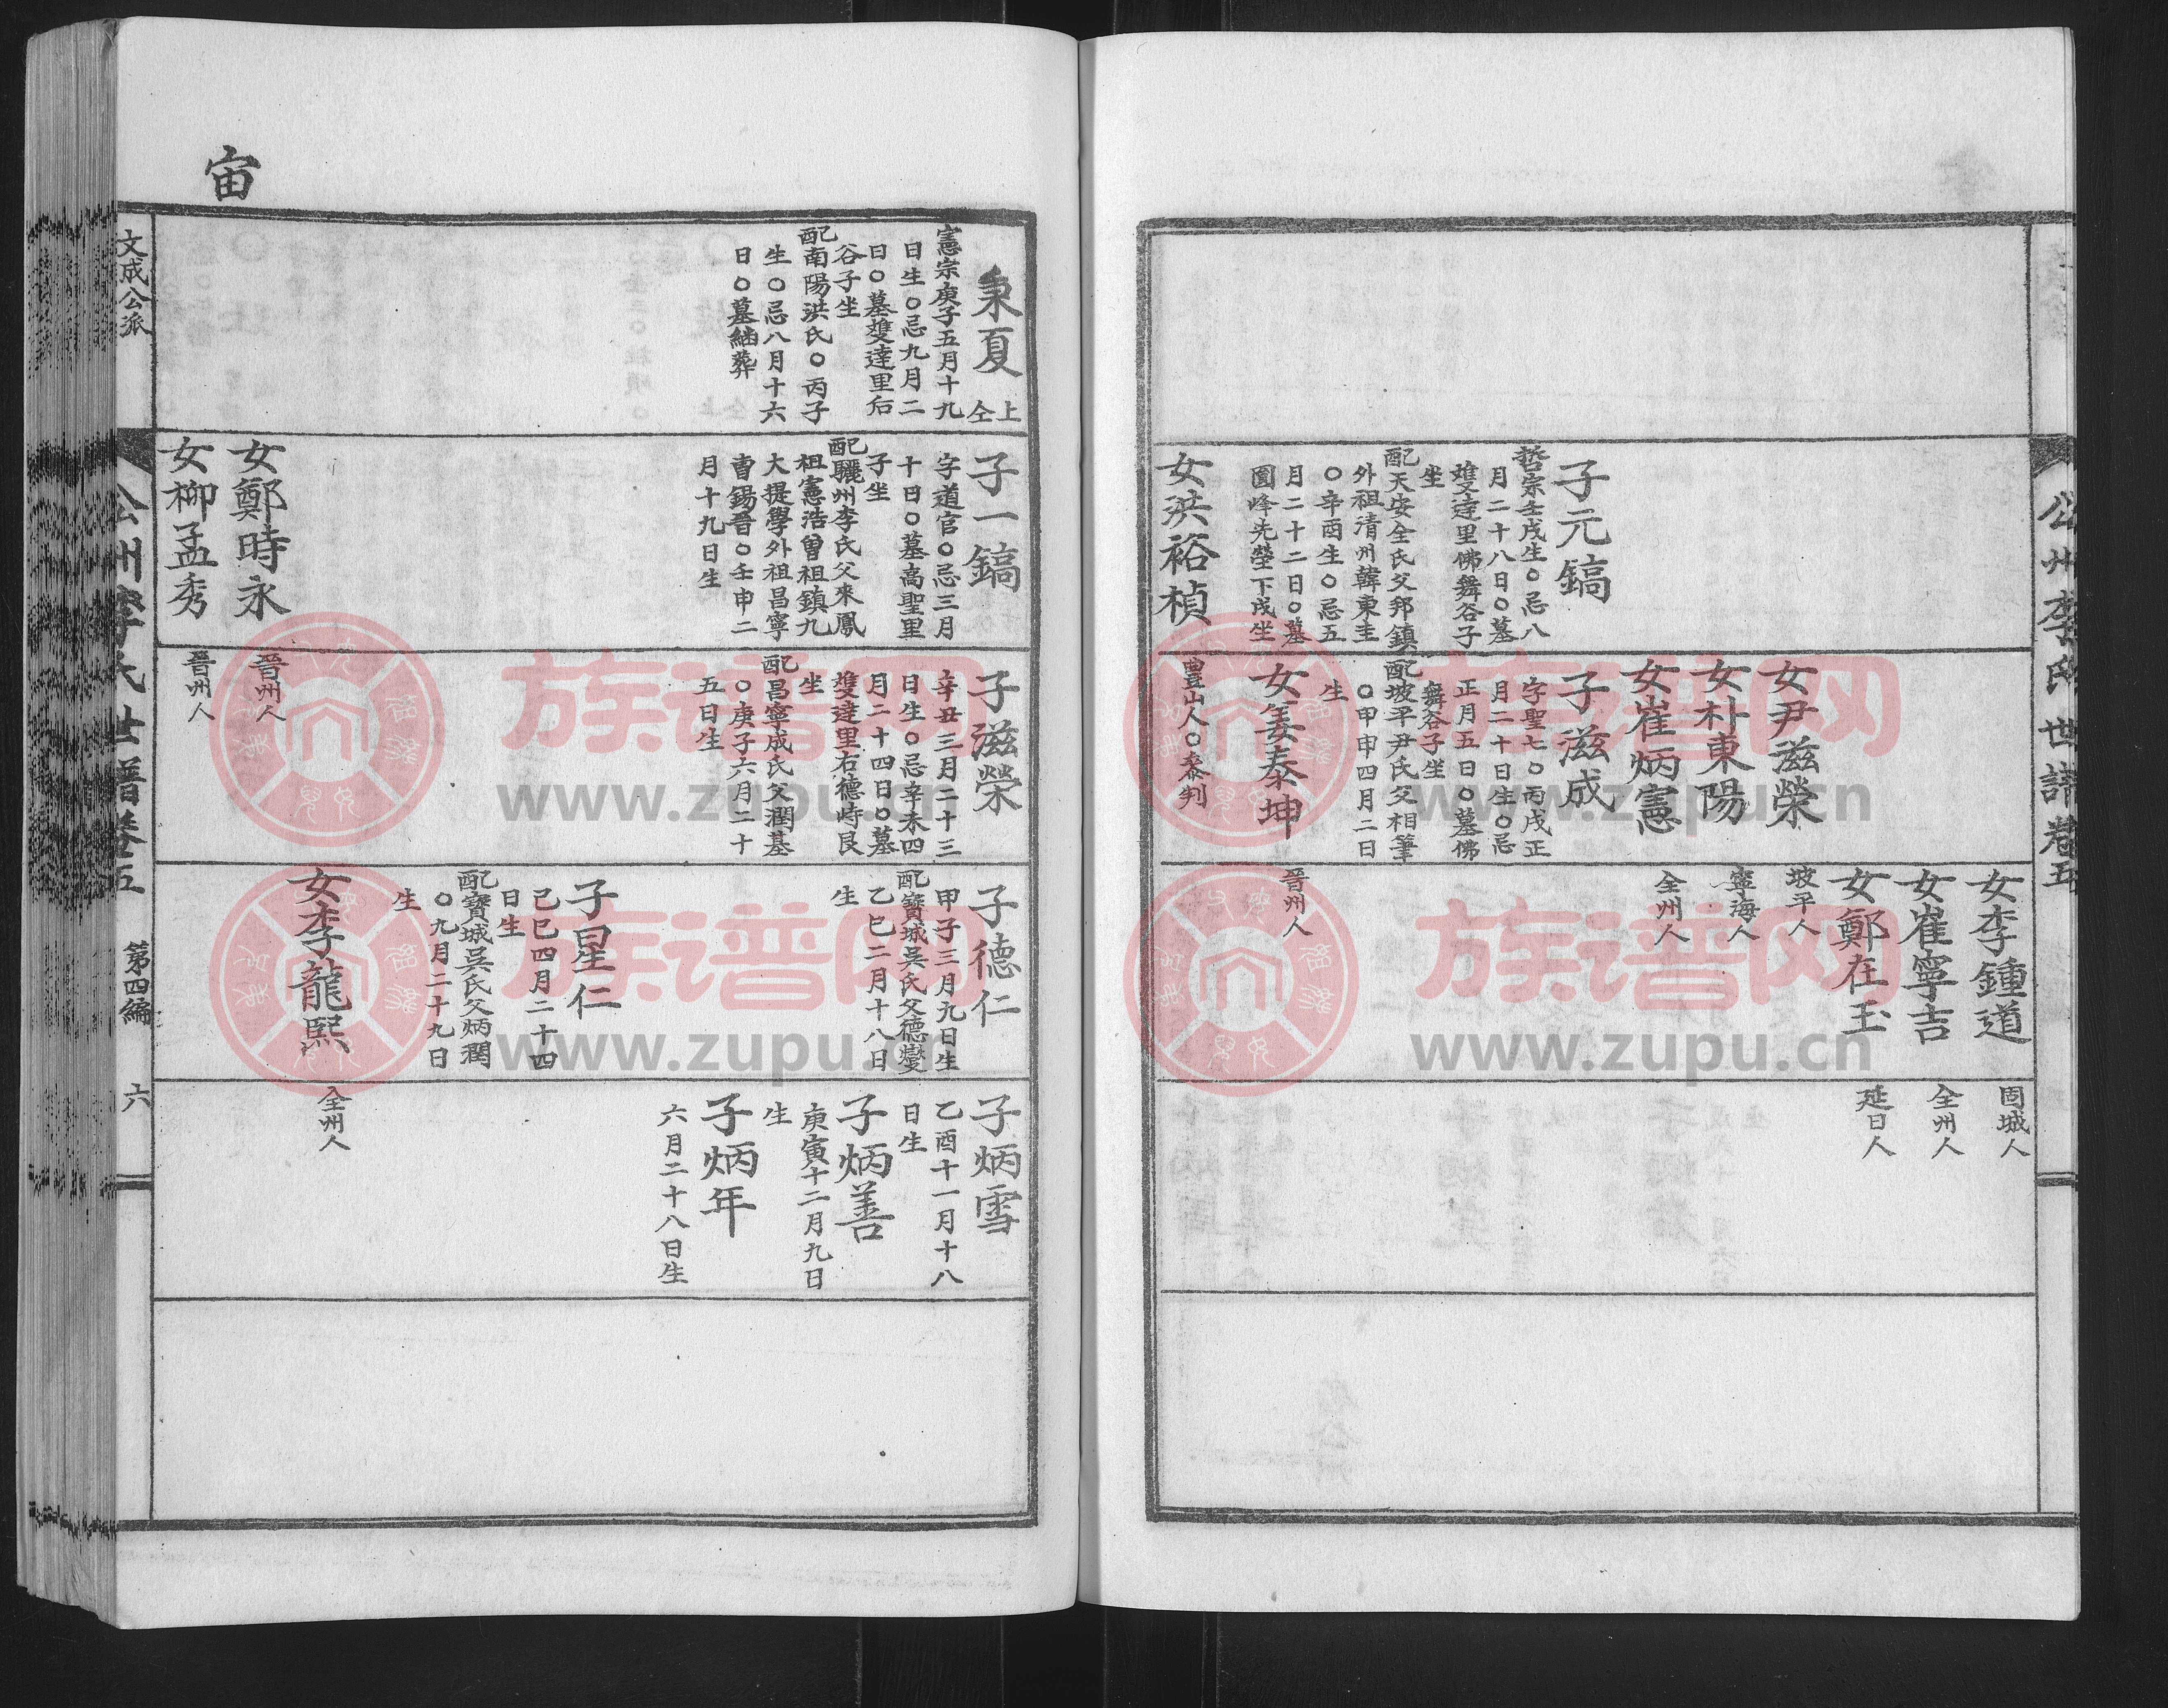 公州李氏世譜卷五
子元鎬
哲宗壬戌生○忌八
月二十八日○墓
雙達里佛舞谷子
坐
配天安全氏父邦鎮
外祖清州韓東圭
○辛酉生○忌五
月二十二日○墓
圓峰先塋下戌坐
女洪裕楨
女尹滋榮
女朴東陽
女崔炳憲
子滋成
字聖七○丙戌正
月二十日生○忌
正月五日○墓佛
舞谷子坐
配坡平尹氏父相筆
○甲申四月二日
生
女姜泰坤
豊山人○參判
女李鍾道
女崔寧吉
女鄭在玉
坡平人
寧海人
全州人
晉州人
固城人
全州人
延日人
宙
秉夏
上
仝
憲宗庚子五月十九
日生○忌九月二
日○墓雙達里后
谷子坐
配南陽洪氏○丙子
生○忌八月十六
日○墓緬葬
子一鎬
字道官○忌三月
十日○墓高聖里
子坐
配驪州李氏父來鳳
祖憲浩曾祖鎮九
大提學外祖昌寧
曺錫晉○壬申二
月十九日生
女鄭時永
女柳孟秀
子滋榮
辛丑三月二十三
日生○忌辛未四
月二十四日○墓
雙達里右德峙艮
坐
配昌寧成氏父潤基
○庚子六月二十
五日生
晉州人
晉州人
子德仁
甲子三月九日生
配寶城吳氏父德燮
乙巳二月十八日
生
子星仁
己巳四月二十四
日生
配寶城吳氏父炳潤
○九月二十九日
生
女李龍熙
子炳雪
乙酉十一月十八
日生
子炳善
庚寅十二月九日
生
子炳年
六月二十八日生
全州人
文成公派
公州李氏世譜卷五
第四編
六
族谱网
www.zupu.cn
族谱网
www.zupu.cn
族谱网
www.zupu.cn
族谱网
www.zupu.cn